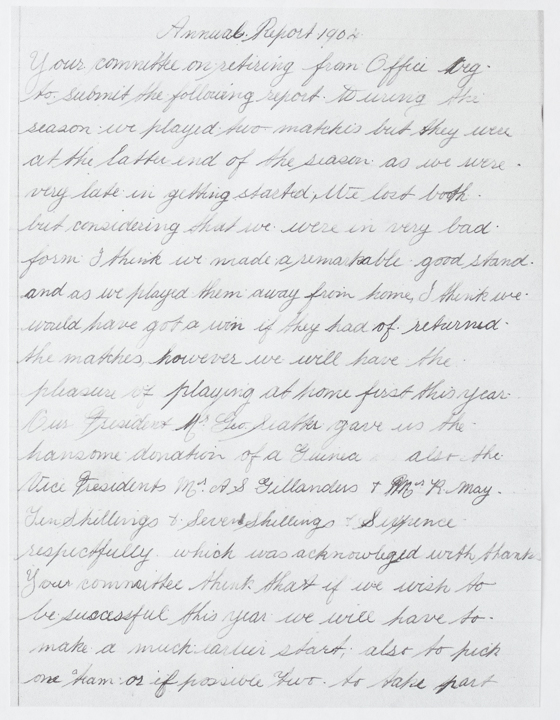 Annual Report 1902
Your committee on retiring from Office beg
to submit the following report. During the
season we played two matches but they were
at the latter end of the season as we were
very late in getting started. We lost both
but considering that we were in very bad
form I think we made a remarkable good stand
and as we played them away from home, I think we
would have got a win if they had of returned
the matches, however we will have the
pleasure of playing at home first this year
Our President Mr Geo gave us the
hansome donation of a Guinea also the
Vice Presidents Mr A S Gillanders & Mr R. May.
Ten Shillings & Seven Shillings & Sixpence
respectfully which was acknowleged with thanks
Your committee think that if we wish to
be successful this year we will have to
make a much earlier start, also to pick
one team or if possible two to take part